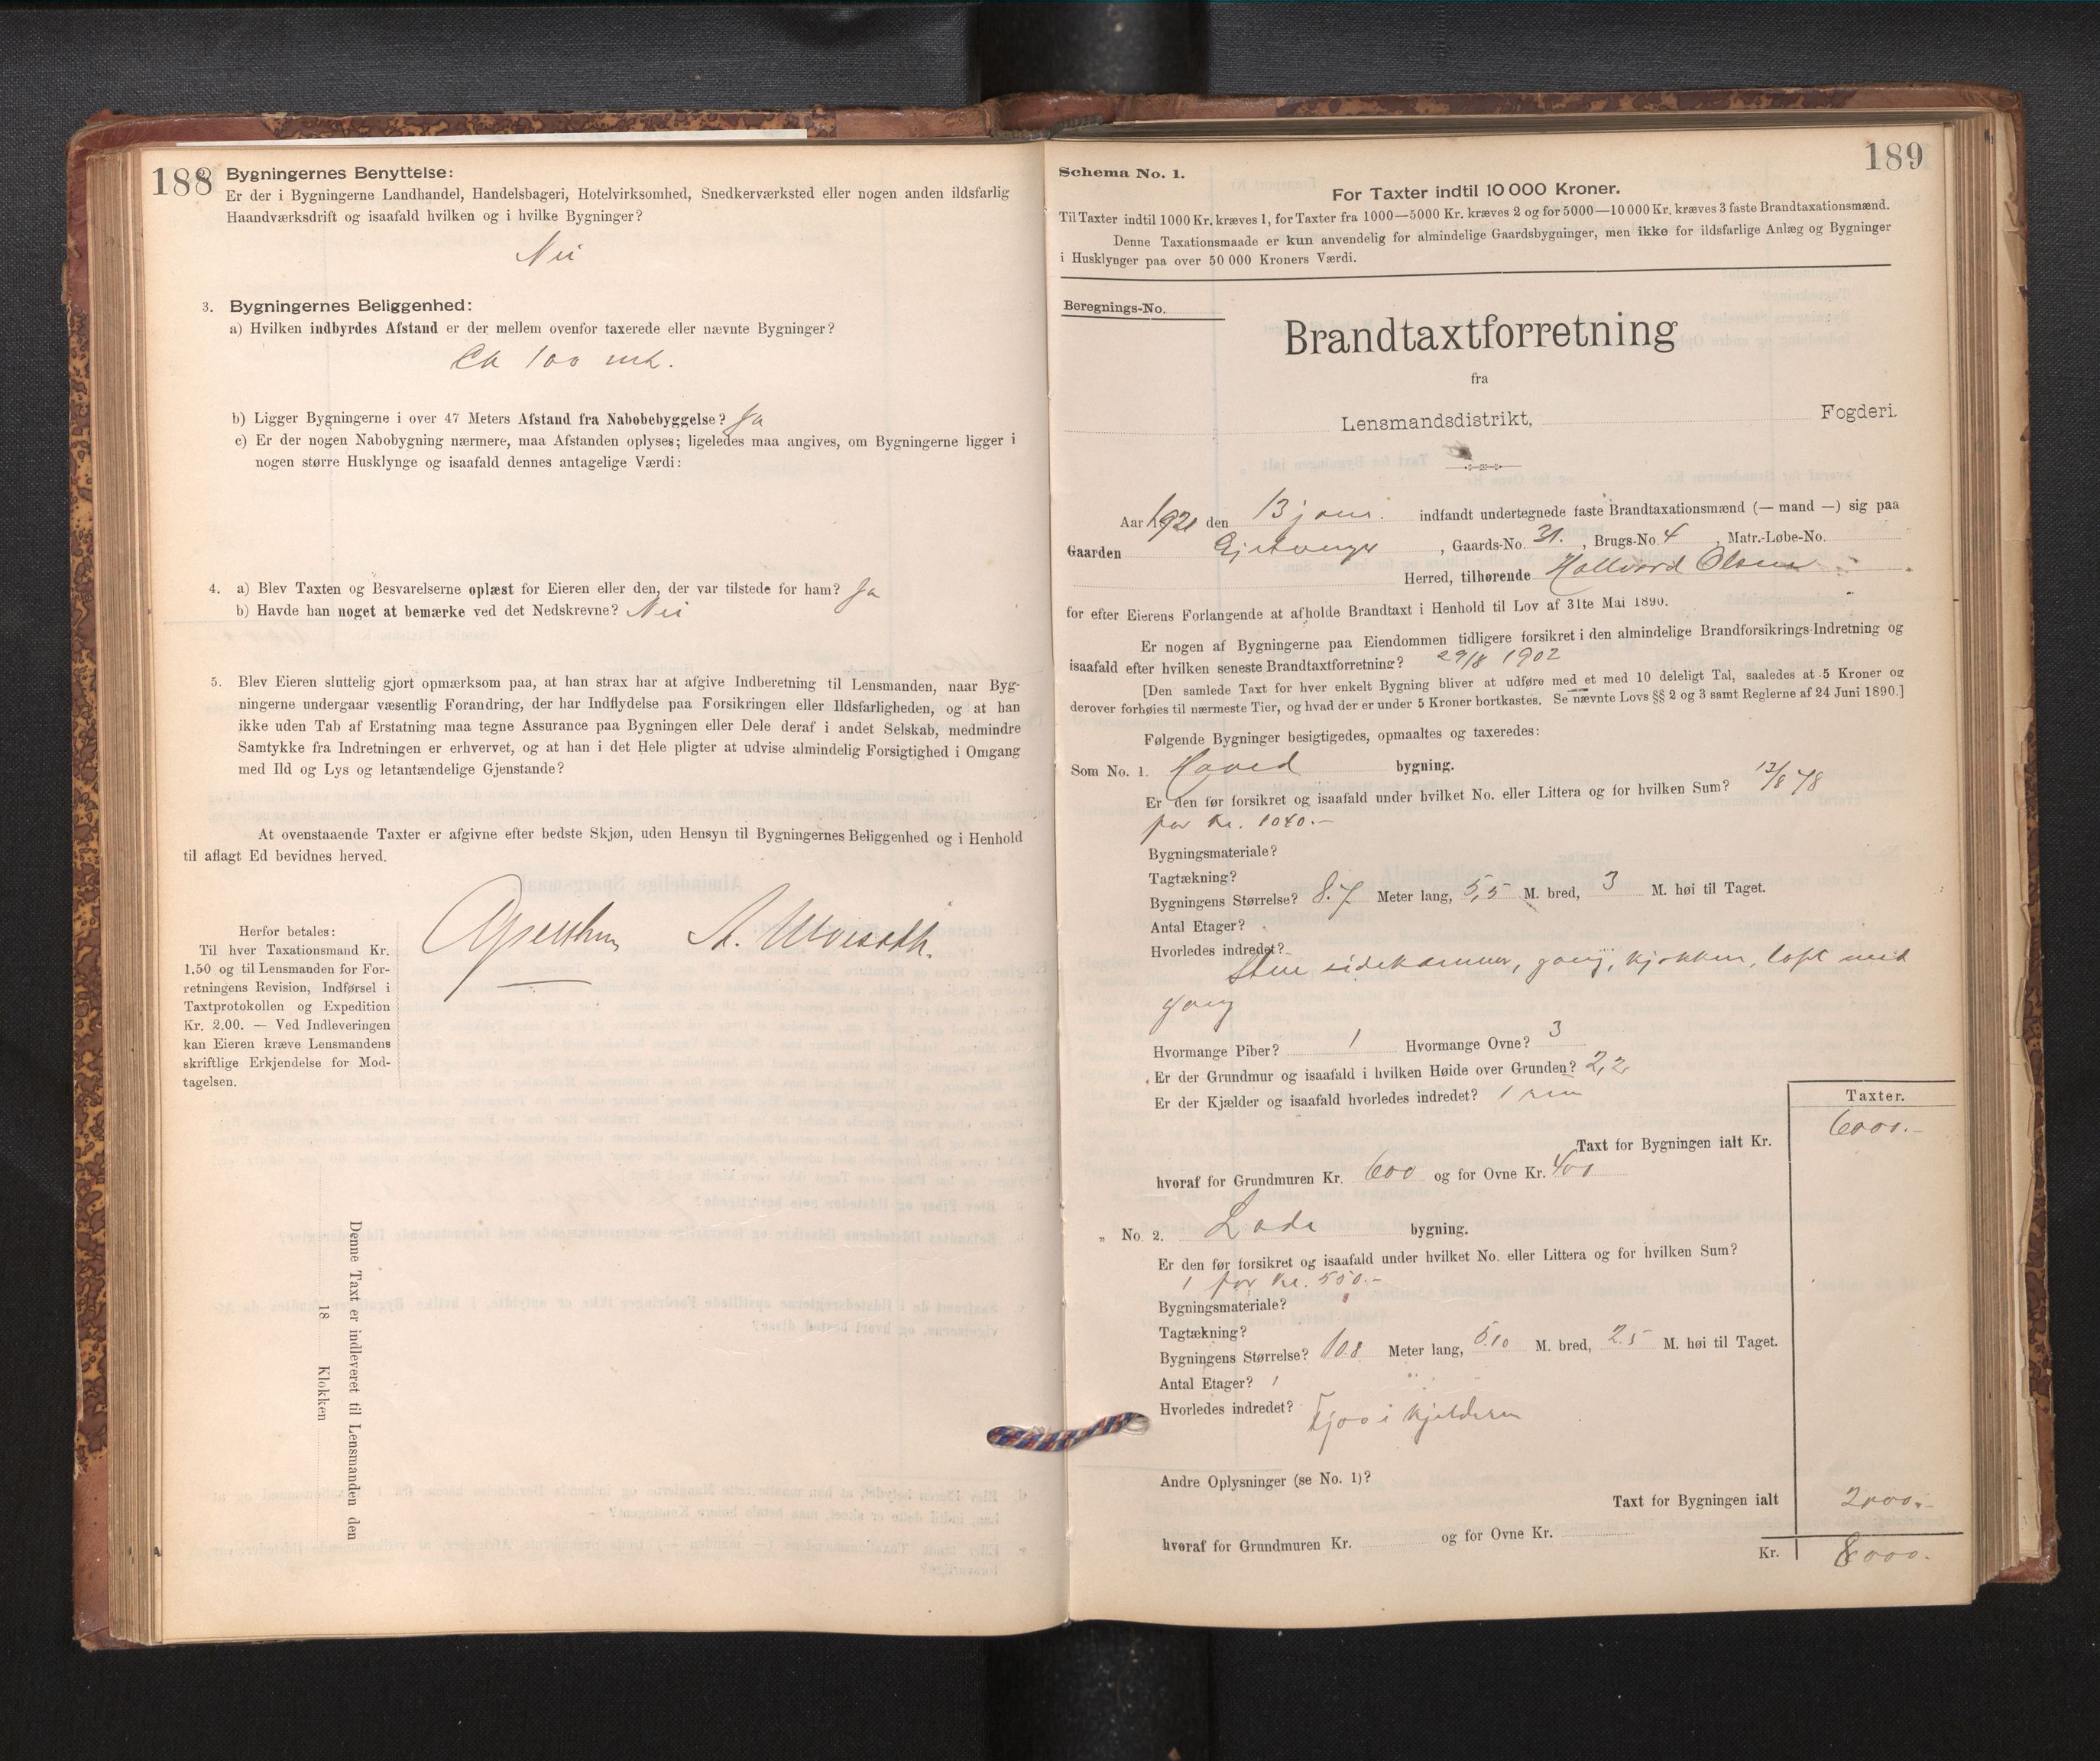 188
Bygningernes Benyttelse:
Er der i Bygningerne Landhandel, Handelsbageri, Hotelvirksomhed, Snedkerværksted eller nogen anden ildsfarlig
Haandværksdrift og isaafald hvilken og i hvilke Bygninger?
Nei
3. Bygningernes Beliggenhed:
a) Hvilken indbyrdes Afstand er der mellem ovenfor taxerede eller nævnte Bygninger?
Ca 100 mtr.
b) Ligger Bygningerne i over 47 Meters Afstand fra Nabobebyggelse? Ja
c) Er der nogen Nabobygning nærmere, maa Afstanden oplyses; ligeledes maa angives, om Bygningerne ligger i
nogen større Husklynge og isaafald dennes antagelige Værdi:
4. a) Blev Taxten og Besvarelserne oplæst for Eieren eller den, der var tilstede for ham? Ja
b) Havde han noget at bemærke ved det Nedskrevne? Nei
5. Blev Eieren sluttelig gjort opmærksom paa, at han strax har at afgive Indberetning til Lensmanden, naar Byg-
ningerne undergaar væsentlig Forandring, der har Indflydelse paa Forsikringen eller Ildsfarligheden, og at han
ikke uden Tab af Erstatning maa tegne Assurance paa Bygningen eller Dele deraf i andet Selskab, medmindre
Samtykke fra Indretningen er erhvervet, og at han i det Hele pligter at udvise almindelig Forsigtighed i Omgang
med Ild og Lys og letantændelige Gjenstande?
At ovenstaaende Taxter er afgivne efter bedste Skjøn, uden Hensyn til Bygningernes Beliggenhed og i Henhold
til aflagt Ed bevidnes herved.
Herfor betales:
Til hver Taxationsmand Kr.
1.50 og til Lensmanden for For-
retningens Revision, Indførsel i
Taxtprotokollen og Expedition
Kr. 2.00. — Ved Indleveringen
kan Eieren kræve Lensmandens
skriftlige Erkjendelse for Mod-
tagelsen.
Denne Taxt er indleveret til Lensmanden den
18 Klokken
189
Schema No. 1.
For Taxter indtil 10 000 Kroner.
Til Taxter indtil 1000 Kr. kræves 1, for Taxter fra 1000—5000 Kr. kræves 2 og for 5000—10 000 Kr. kræves 3 faste Brandtaxationsmænd.
Denne Taxationsmaade er kun anvendelig for almindelige Gaardsbygninger, men ikke for ildsfarlige Anlæg og Bygninger
i Husklynger paa over 50 000 Kroners Værdi.
Beregnings-No.
Brandtaxtforretning
fra
Lensmandsdistrikt, Fogderi.
Aar 1921 den 13 jan. indfandt undertegnede faste Brandtaxationsmænd (— mand —) sig paa
Gaarden , Gaards-No. 31. , Brugs-No. 4 , Matr.-Løbe-No.
Herred, tilhørende Hallvard Olsen
for efter Eierens Forlangende at afholde Brandtaxt i Henhold til Lov af 31te Mai 1890.
Er nogen af Bygningerne paa Eiendommen tidligere forsikret i den almindelige Brandforsikrings-Indretning og
isaafald efter hvilken seneste Brandtaxtforretning? 29/8 1902
[Den samlede Taxt for hver enkelt Bygning bliver at udføre med et med 10 deleligt Tal, saaledes at 5 Kroner og
derover forhøies til nærmeste Tier, og hvad der er under 5 Kroner bortkastes. Se nævnte Lovs §§ 2 og 3 samt Reglerne af 24 Juni 1890.]
Følgende Bygninger besigtigedes, opmaaltes og taxeredes:
Som No. 1. Hoved bygning.
Er den før forsikret og isaafald under hvilket No. eller Littera og for hvilken Sum? 12/8 78
for kr. 1040.-
Bygningsmateriale?
Tagtækning?
Bygningens Størrelse? 8.7 Meter lang, 5,5 M. bred, 3 M. høi til Taget.
Antal Etager?
Hvorledes indredet?
Stue sidekammer, gang, kjøkken, loft med
gang
Hvormange Piber? 1 Hvormange Ovne? 3
Er der Grundmur og isaafald i hvilken Høide over Grunden? 2,2
Er der Kjælder og isaafald hvorledes indredet? 1 rum
Taxter.
Taxt for Bygningen ialt Kr. 6000.-
hvoraf for Grundmuren Kr. 600 og for Ovne Kr. 400
„ No. 2. Lade bygning.
Er den før forsikret og isaafald under hvilket No. eller Littera og for hvilken Sum?
1 for kr. 550.-
Bygningsmateriale?
Tagtækning?
Bygningens Størrelse? 10.8 Meter lang, 5.10 M. bred, 2.5 M. høi til Taget.
Antal Etager? 1
Hvorledes indredet? Fjos i kjelderen
Andre Oplysninger (se No. 1)?
Taxt for Bygningen ialt 2000.-
hvoraf for Grundmuren Kr. og for Ovne Kr.
Kr. 8000.